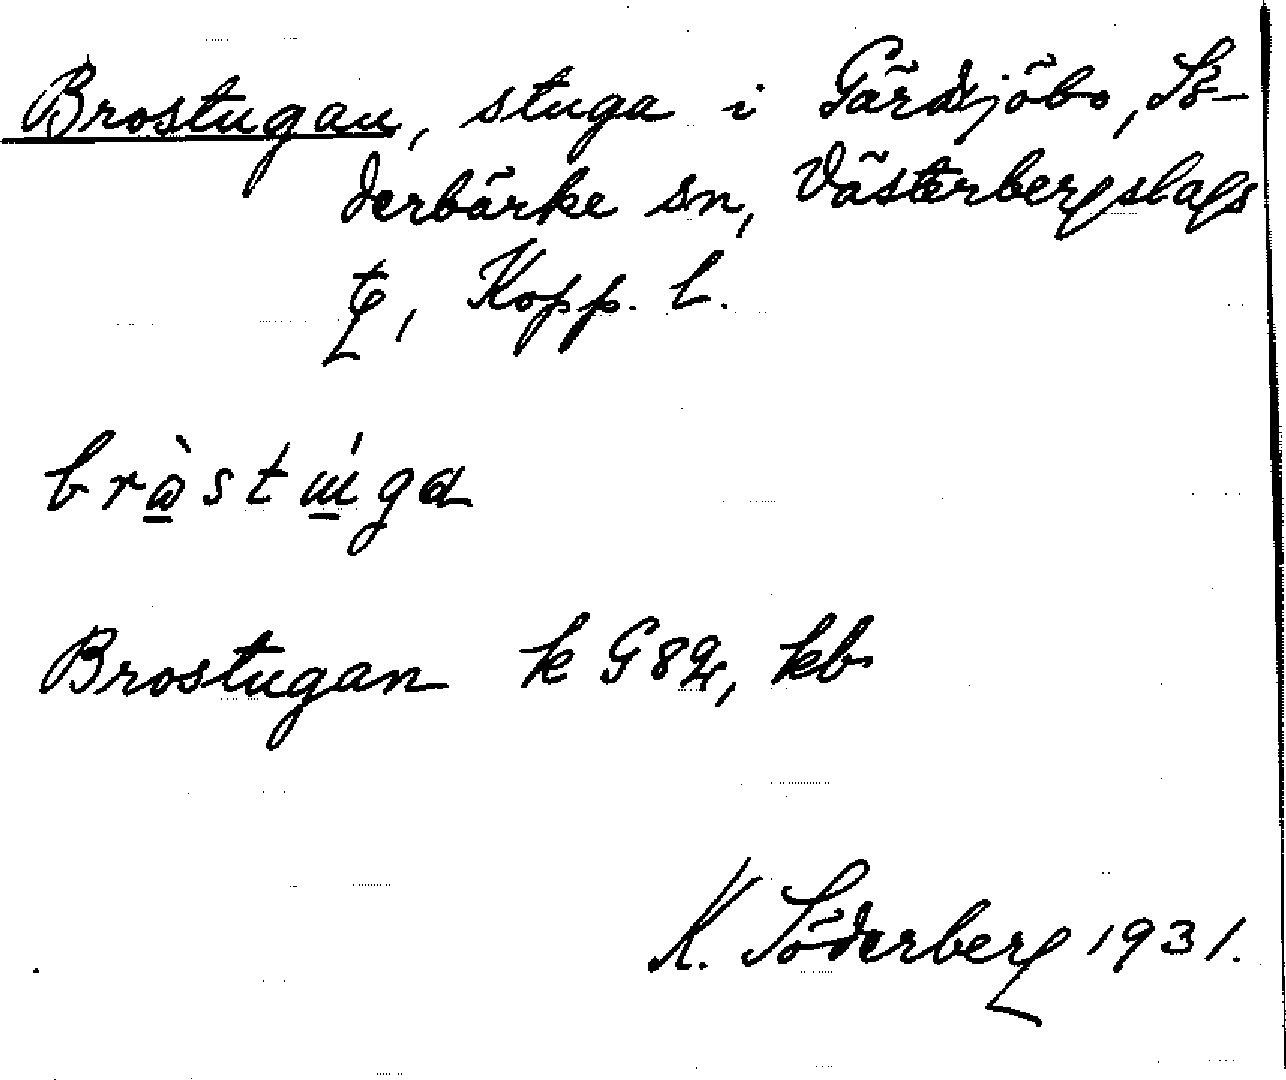 Brostugan, stuga i Gärdsjöbo, Sö-
derbärke sn, Västerbergslags
Kopp. l.
Brostugan k G82, kb
K. Söderberg 1931.